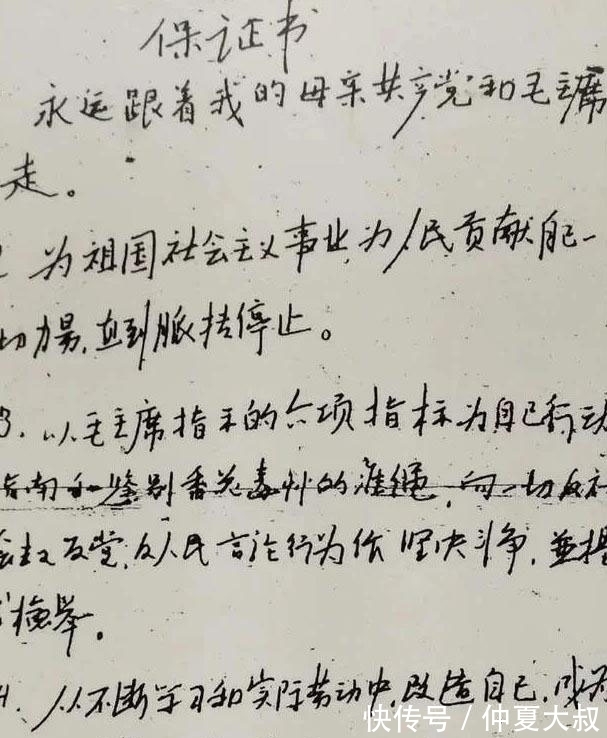 保证书
永远跟着我的母亲共产党和毛主席
走。
为祖国社会主义事业,为人民贡献自己一
切力量,直到脉搏停止。
3. 以毛主席指示的六项指标为自己行动
指南和鉴别香花毒草的准绳,向一切反社
会主义反党,反人民言论行为作坚决斗争,并揭
检举。
4. 从不断学习和实际劳动中,改造自己,成为
快传号 / 仲夏大叔